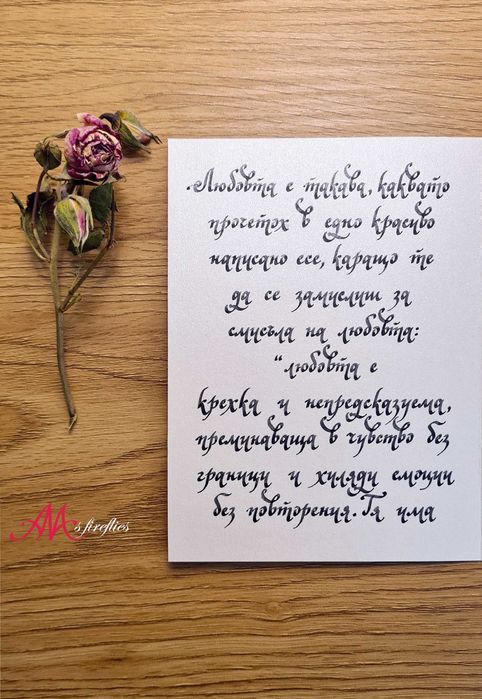 ·Любовта е такава, каквато
прочетох в едно красиво
написано есе, каращо те
да се замислиш за
смисъла на любовта:
“любовта е
крехка и непредсказуема,
преминаваща в чувство без
граници и хиляди емоции
без повторения. Тя има
AA's fireflies